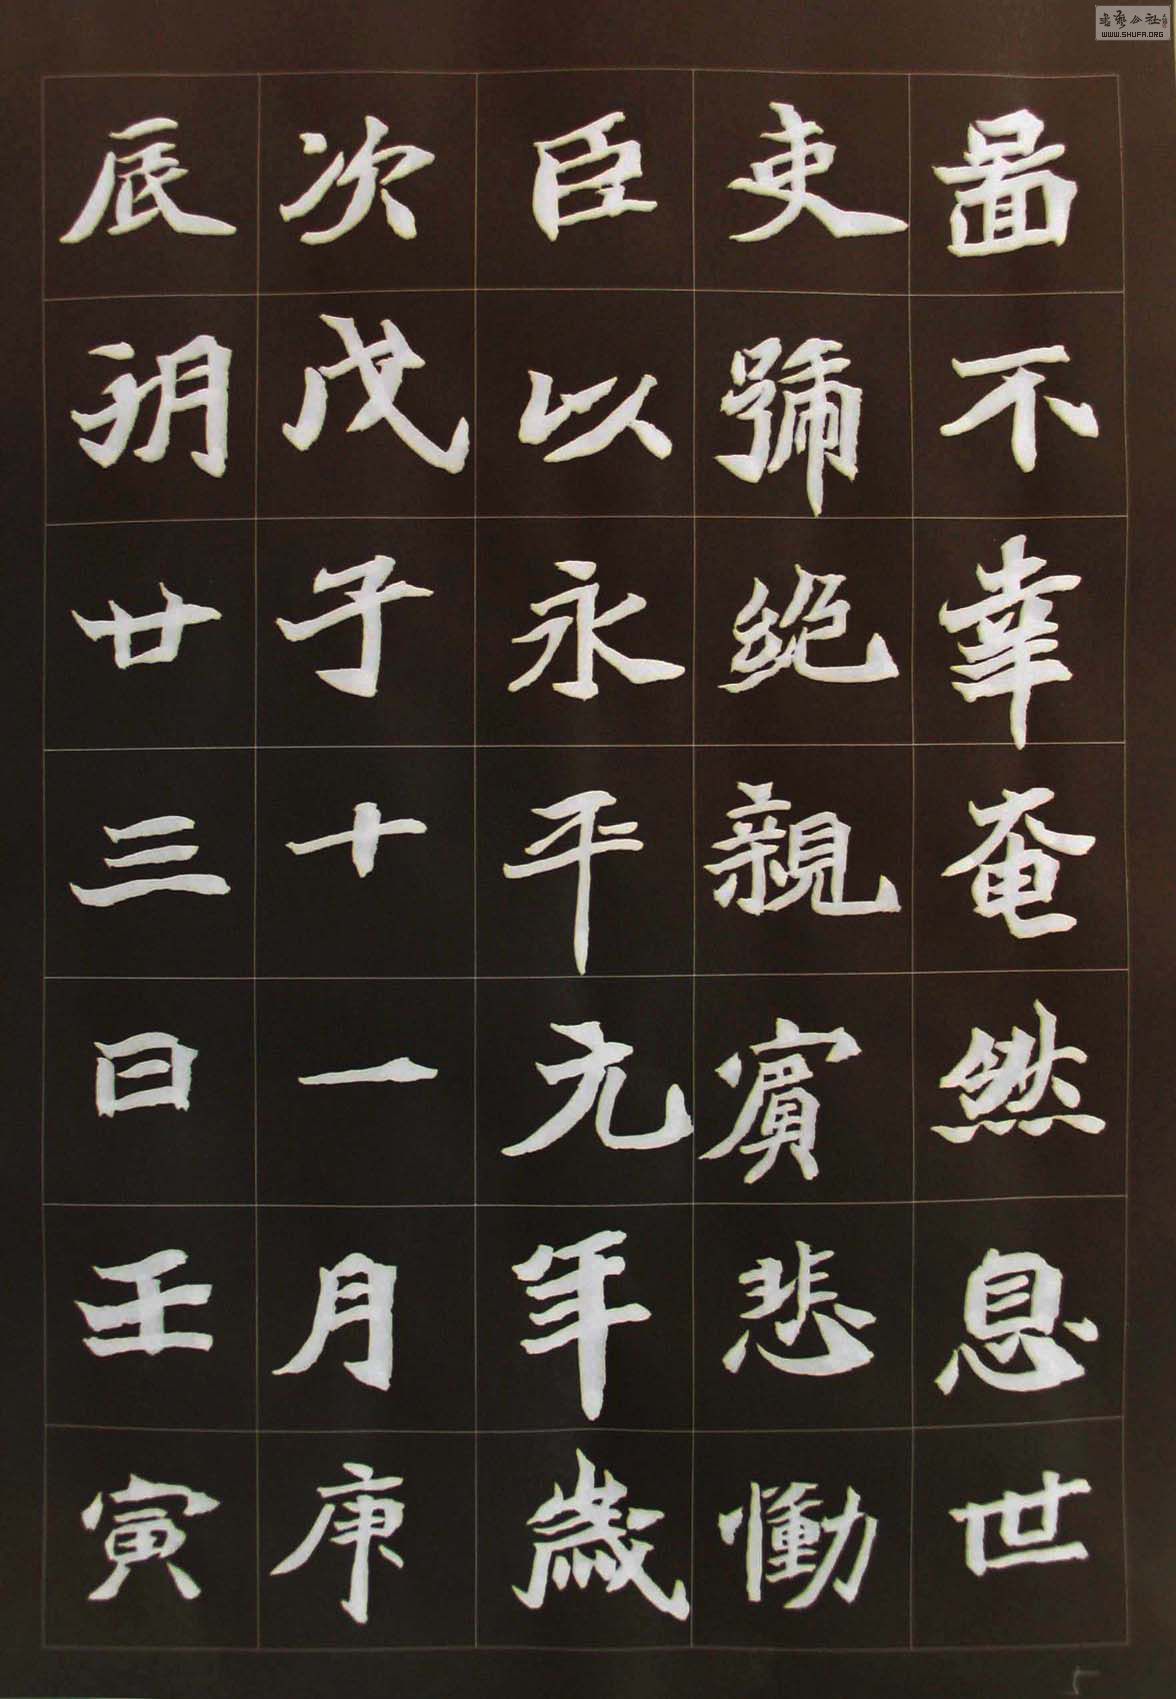 啚不幸奄然息世
吏號絶親賓悲慟
臣以永平元年歲
次戊子十一月庚
辰朔廿三日壬寅
WWW.SHUFA.ORG